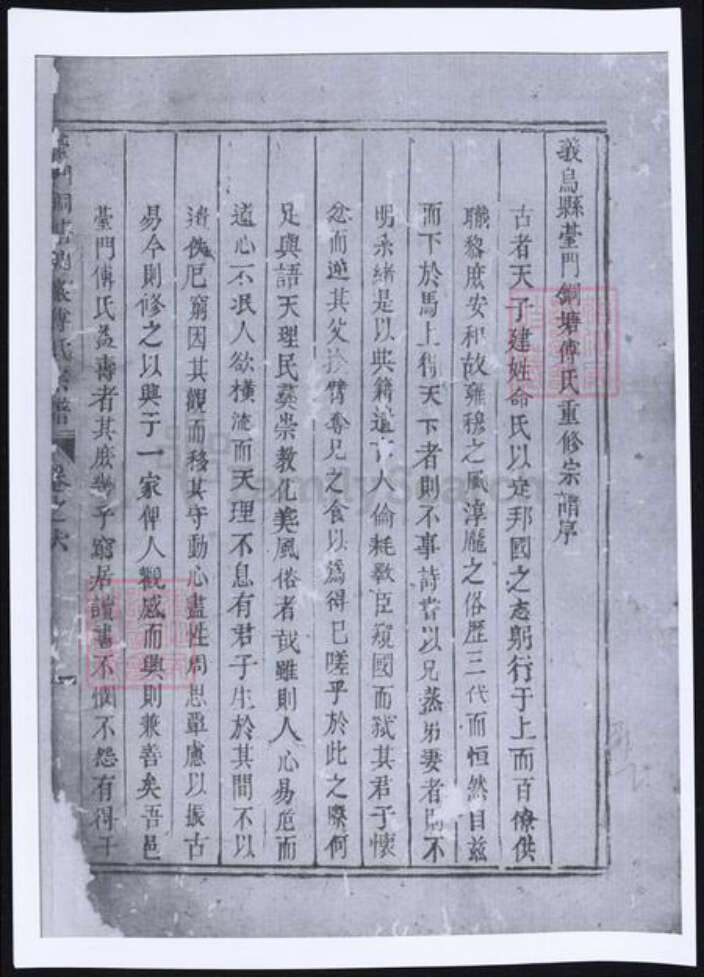 義烏縣臺門銅塘傅氏重修宗譜序
古者天子建姓命氏以定邦國之志躬行于上而百僚供
職黎庶安和故雍穆之風淳龎之俗歷三代而恒然自兹
而下於馬上得天下者則不事詩書以兄蒸弟妻者則不
明承緒是以典籍遺亡人倫耗斁臣窺國而弒其君子懷
忿而逆其父紾臂奪兄之食以爲得已嗟乎於此之際何
足與語天理民彛崇教化美風俗者哉雖則人心易危而
道心不泯人欲橫流而天理不息有君子生於其間不以
佚厄窮因其觀而移其守動心盡性周思覃慮以振古
易今則修之以興于一家俾人觀感而興則兼善矣吾邑
臺門傅氏益壽者其庶幾乎窮居讀書不憫不怨有得于
傅氏宗譜
卷之六
FamilySearch